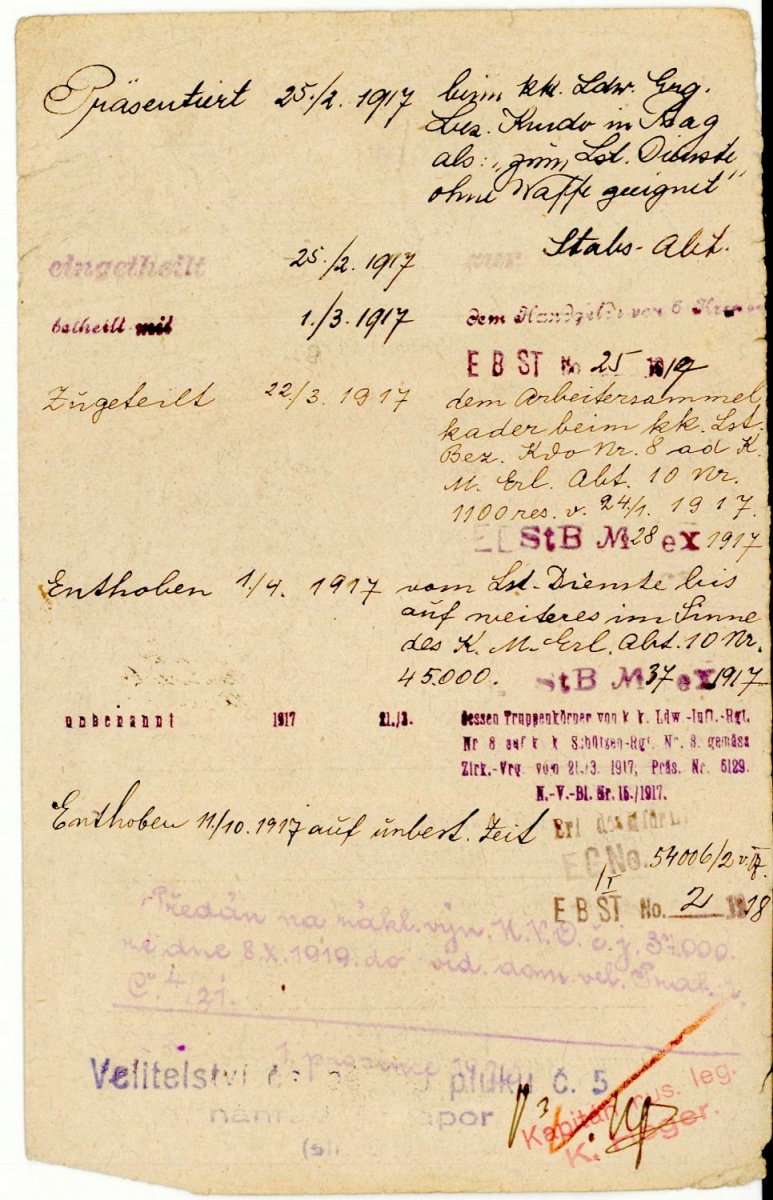 Präsentiert 25./2. 1917 beim kk. Ldw. Erg.
Bez. Kmdo in Prag
als: „zum Lst. Dienste
ohne Waffe geeignet"
eingetheilt 25./2. 1917 zur Stabs-Abt.
betheilt mit 1./3. 1917 dem Handgelde von 6 Kronen
E B ST No 25 1917
Zugeteilt 22/3. 1917 dem Arbeitersammel
kader beim kk. Lst.
Bez. Kdo Nr. 8 ad K.
M. Erl. Abt. 10 Nr.
1100 res. v. 24/1. 1917.
StB No 28 ex 1917
Enthoben 1/4. 1917 vom Lst-Dienste bis
auf weiteres im Sinne
des K. M.-Erl. Abt. 10 Nr.
45000. StB No 37 ex 1917
unbenannt 1917 21./3. dessen Truppenkörper von k. k. Ldw.-Inft.-Rgt.
Nr 8 auf k. k. Schützen-Rgt. Nr. 8. gemäss
Zirk.-Vrg. vom 21./3. 1917, Präs. Nr. 5129.
N.-V.-Bl. Nr. 15./1917.
Enthoben 11/10. 1917 auf unbest. Zeit Erl. des
No. 54006/2 v. 17.
E B ST No. 2 1918
Předán na zákl. výn. M.N.O. č.j. 37.000.
ze dne 8.X.1919. do vid. dom. vel.
Č. 4/21.
1. prosince
Velitelství pluku č. 5
(sh
Kapitán rus. leg.
K.